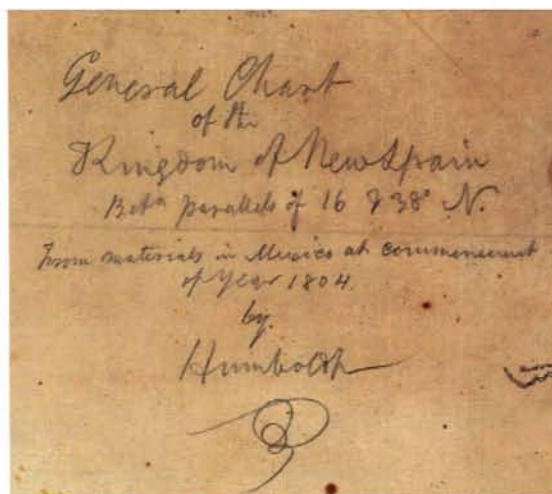 General Chart
of the
Kingdom of New Spain
Betn parallels of 16 & 38° N.
From materials in Mexico at commencement
of year 1804
by
Humboldt